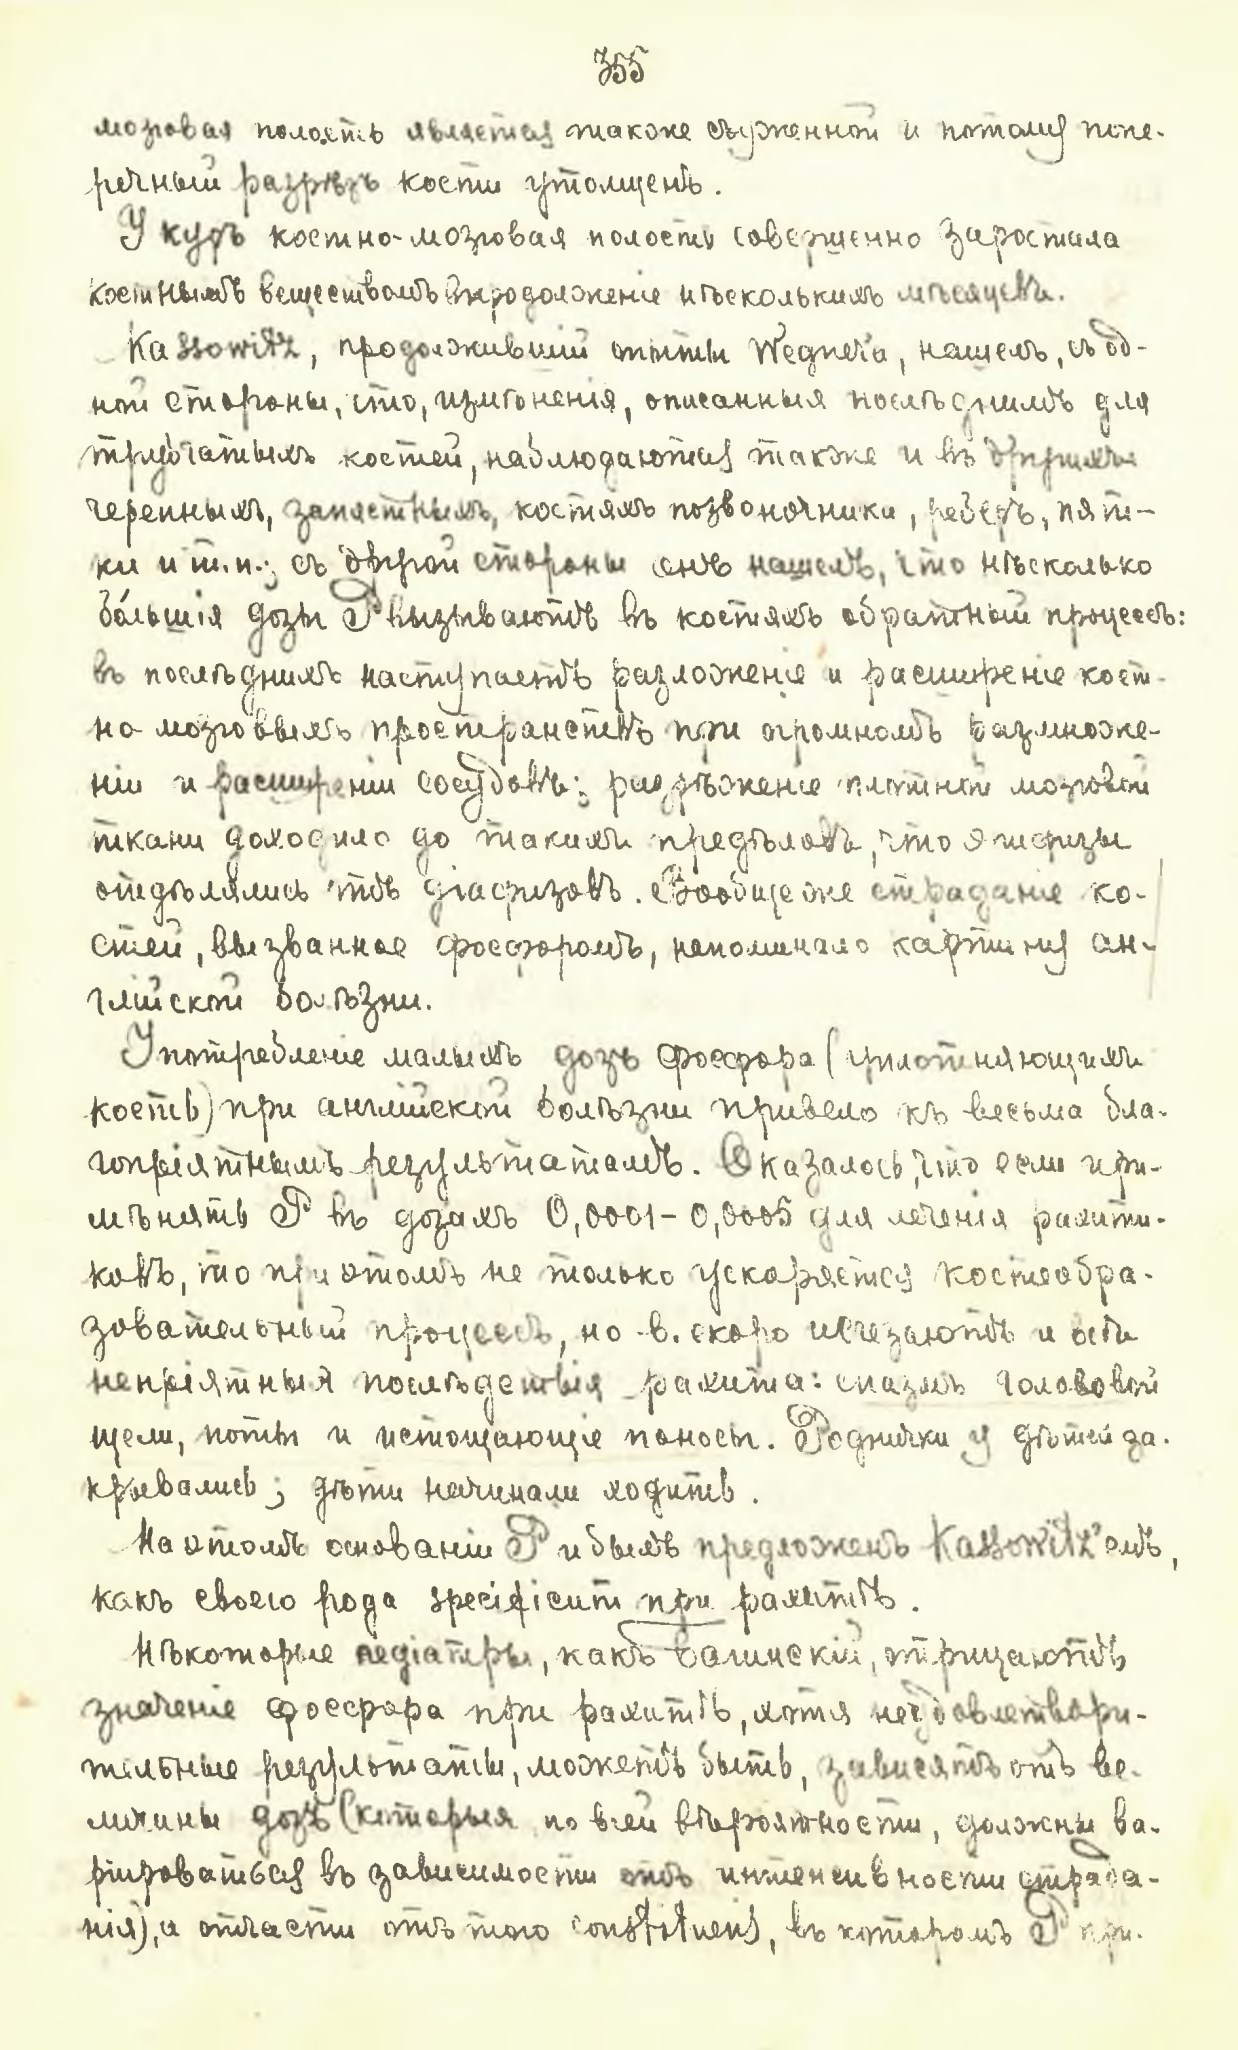 355
мозговая полость является также съуженной и потому попе-
речный разрѣзъ кости утолщенъ.
У куръ костно-мозговая полость совершенно заростала
костнымъ веществомъ впродолженіе нѣсколькихъ мѣсяцевъ.
Kassowitz, продолжившій опыты Wegner'а, нашелъ, съ од-
ной стороны, что, измѣненія, описанныя послѣднимъ для
трубчатыхъ костей, наблюдаются также и въ другихъ
черепныхъ, запястныхъ, костяхъ позвоночника, реберъ, пят-
ки и т.п.; съ другой стороны онъ нашелъ, что нѣсколько
бо́льшія дозы P вызываютъ въ костяхъ обратный процессъ:
въ послѣднихъ наступаетъ разложеніе и расширеніе кост-
но-мозговыхъ пространствъ при огромномъ размноже-
ніи и расширеніи сосудовъ; разрѣженіе плотной мозговой
ткани доходило до такихъ предѣловъ, что эпифизы
отдѣлялись отъ діафизовъ. Вообще же страданіе ко-
стей, вызванное фосфоромъ, напоминало картину ан-
глійской болѣзни.
Употребленіе малыхъ дозъ фосфора (уплотняющихъ
кость) при англійской болѣзни привело къ весьма бла-
гопріятнымъ результатамъ. Оказалось, что если при-
мѣнять P въ дозахъ 0,0001-0,0005 для леченія рахити-
ковъ, то при этомъ не только ускоряется костеобра-
зовательный процессъ, но в. скоро исчезаютъ и всѣ
непріятныя послѣдствія рахита: спазмъ головой
щели, поты и истощающіе поносы. Роднички у дѣтей за-
крывались; дѣти начинали ходить.
На этомъ основаніи P и былъ предложенъ Kassowitz'омъ,
какъ своего рода specificum при рахитѣ.
Нѣкоторые педіатры, какъ Багинскій, отрицаютъ
значеніе фосфора при рахитѣ, хотя неудовлетвори-
тельные результаты, можетъ быть, зависятъ отъ ве-
личины дозъ (которыя по всей вѣроятности, должны ва-
ріироваться въ зависимости отъ интенсивности страда-
нія), а отчасти отъ того constituens, въ которомъ P при-